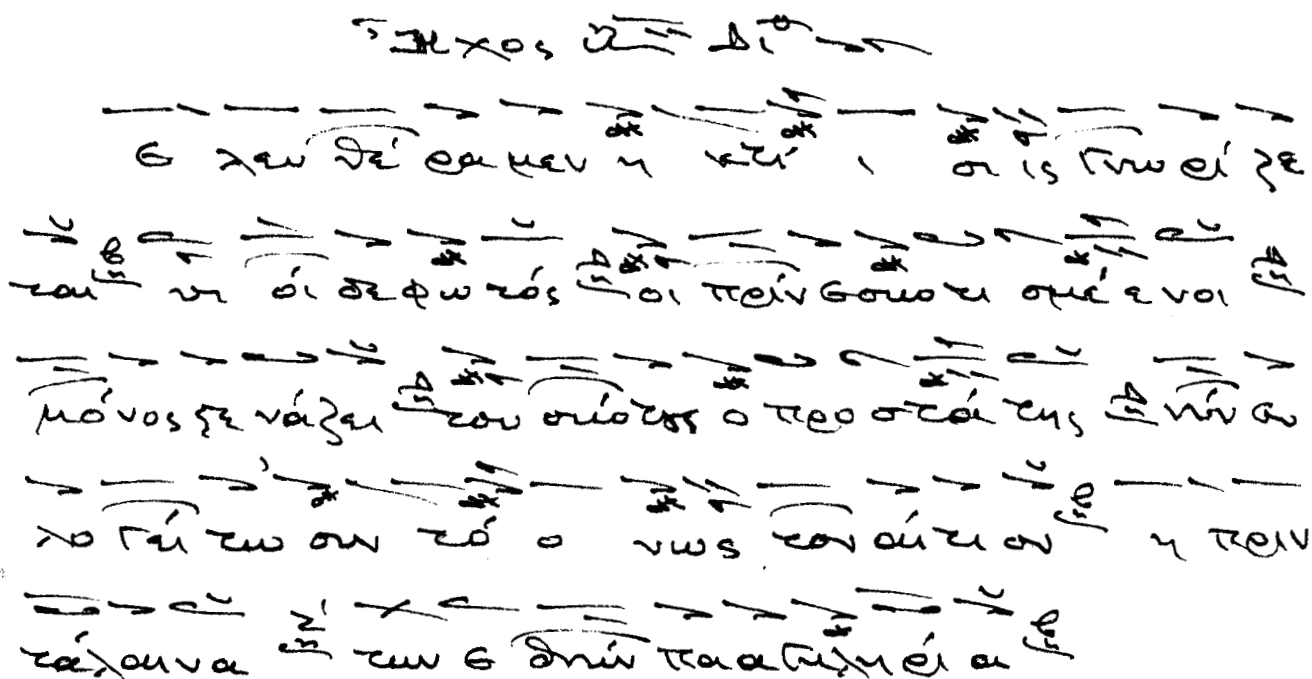 Ἦχος Δι
Ε λευ θέ ρα μεν η κτί ι σις Γνω ρί ζε
ται υι οί δε φω τός οι πρίν Εσκοτι σμέ ε νοι
μό νος στε νά ζει του σκότους ο προ στά της νύν ευ
λο Γεί τω συν τό ο νως τον αίτι ον η πριν
τά λαι να των Ε θνών πα α Γκλη ρί α